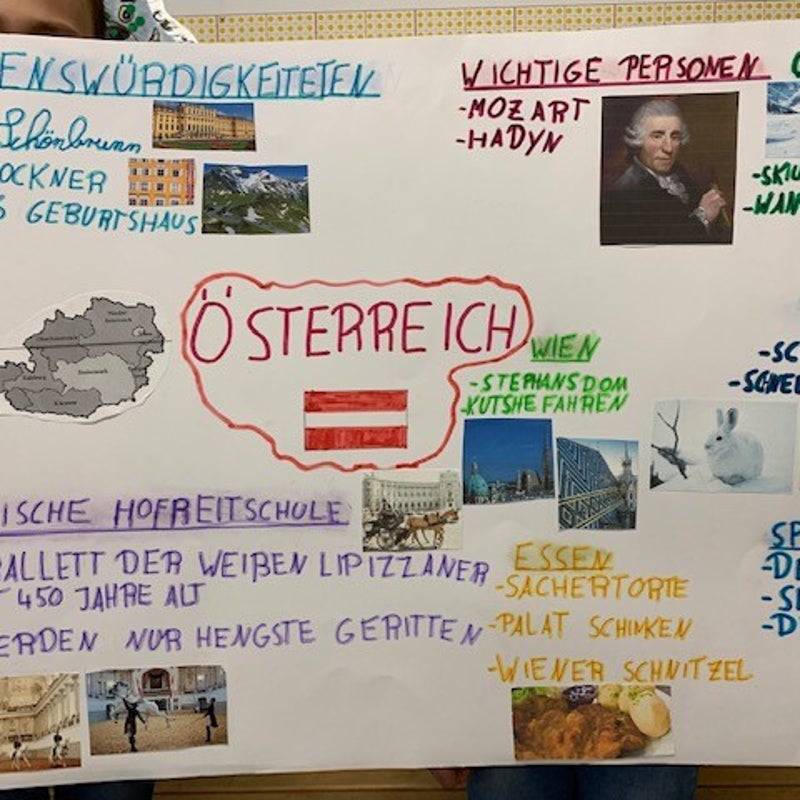 ENSWÜRDIGKEITETEN
Schönbrunn
OCKNER
GEBURTSHAUS
WICHTIGE PERSONEN
-MOZART
-HADYN
-SKIL
-WAN
ÖSTERREICH
WIEN
-STEPHANSDOM
-KUTSHE FAHREN
-SC
-SCHNEI
ISCHE HOFREITSCHULE
BALLETT DER WEIßEN LIPIZZANER
T 450 JAHRE ALT
ERDEN NUR HENGSTE GERITTEN
ESSEN
-SACHERTORTE
-PALAT SCHINKEN
-WIENER SCHNITZEL
SP